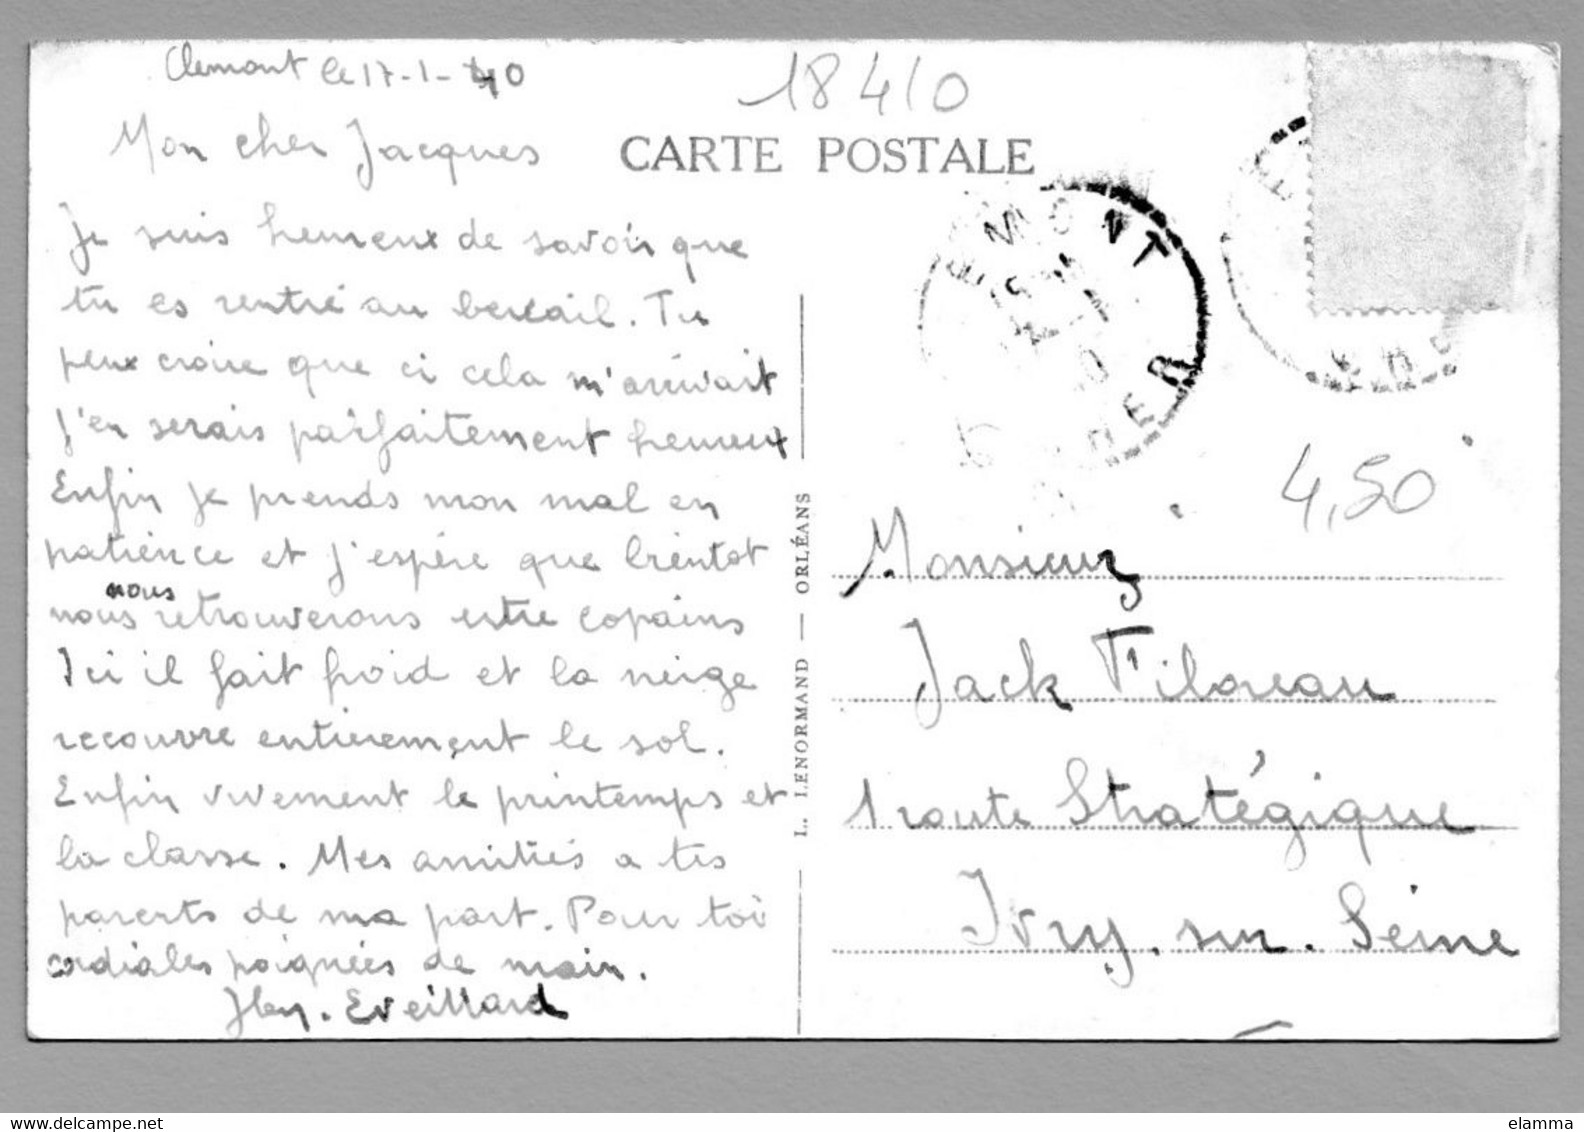 Clemont le 17-1-40
18410
Mon cher Jacques
CARTE POSTALE
Je suis heureux de savoir que
tu es rentré au bercail. Tu
peux croire que ci cela m'arrivait
j'en serais parfaitement heureux
Enfin je prends mon mal en
patience et j'espère que bientot
nous nous retrouverons entre copains
Ici il fait froid et la neige
recouvre entierement le sol.
Enfin vivement le printemps et
la classe. Mes amitiés a tes
parents de ma part. Pour toi
cordiales poignées de main.
Eveillard
L. LENORMAND — ORLÉANS
MONT
CHER
4,50
Monsieur
Jack Filoreau
1 route Stratégique
Ivry. sur. Seine
delcampe.net
elamma